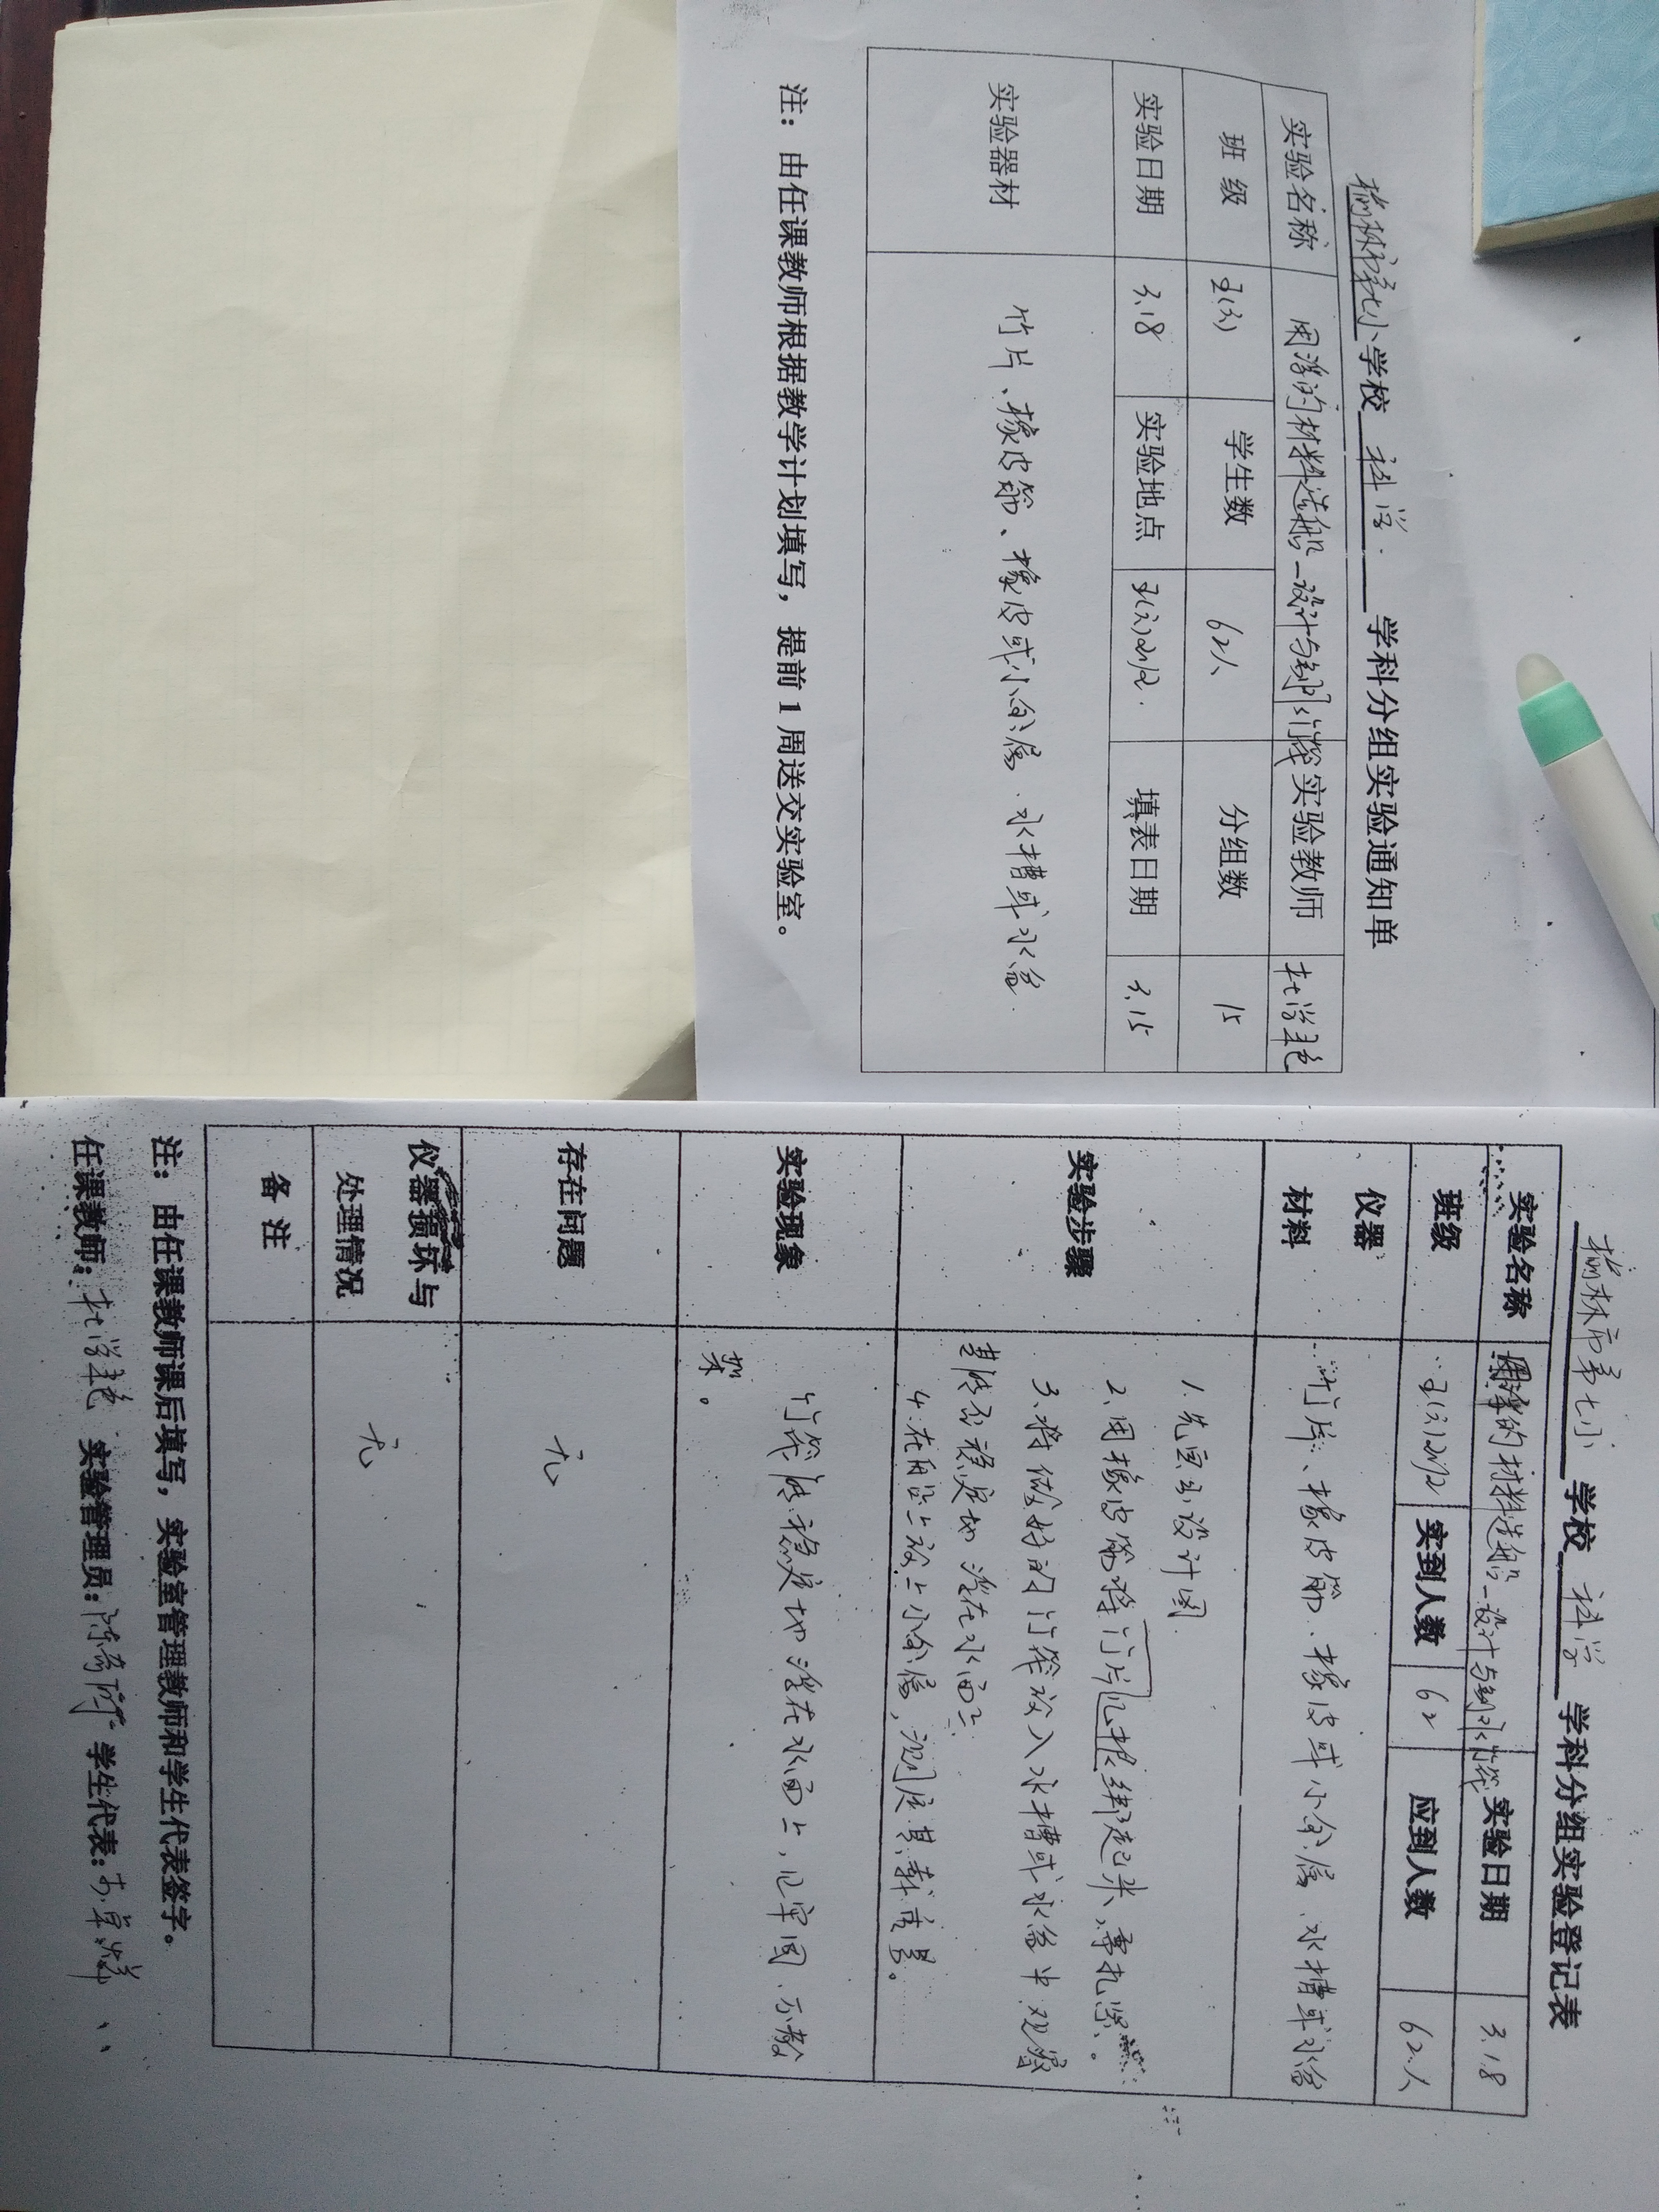 榆林市第七小学校 科学 学科分组实验通知单
实验名称 用浮的材料造船—设计与制作竹筏 实验教师 杜
班 级 五(3) 学生数 62人 分组数 15
实验日期 3.18 实验地点 五(3) 填表日期 3.15
实验器材 竹片、橡皮筋、橡皮或小金属、水槽或水盆
注： 由任课教师根据教学计划填写，提前 1 周送交实验室。
榆林市第七小 学校 科学 学科分组实验登记表
实验名称 用浮的材料造船—设计与制作竹筏 实验日期 3.18
班级 五(3) 实到人数 62 应到人数 62人
仪器
材料 竹片、橡皮筋、橡皮或小金属、水槽或水盆
实验步骤 1.先画出设计图.
2.用橡皮筋将竹片几根绑起来，需扎紧。
3.将做好的竹筏放入水槽或水盆中观察
其能否稳定地浮在水面上
4.在船上放上小金属，测量其载重量。
实验现象 竹筏能稳定地浮在水面上，且牢固、不散
架。
存在问题 无
仪器损坏与
处理情况 无
备 注
注： 由任课教师课后填写，实验室管理教师和学生代表签字。
任课教师： 杜 实验管理员： 陈 学生代表：